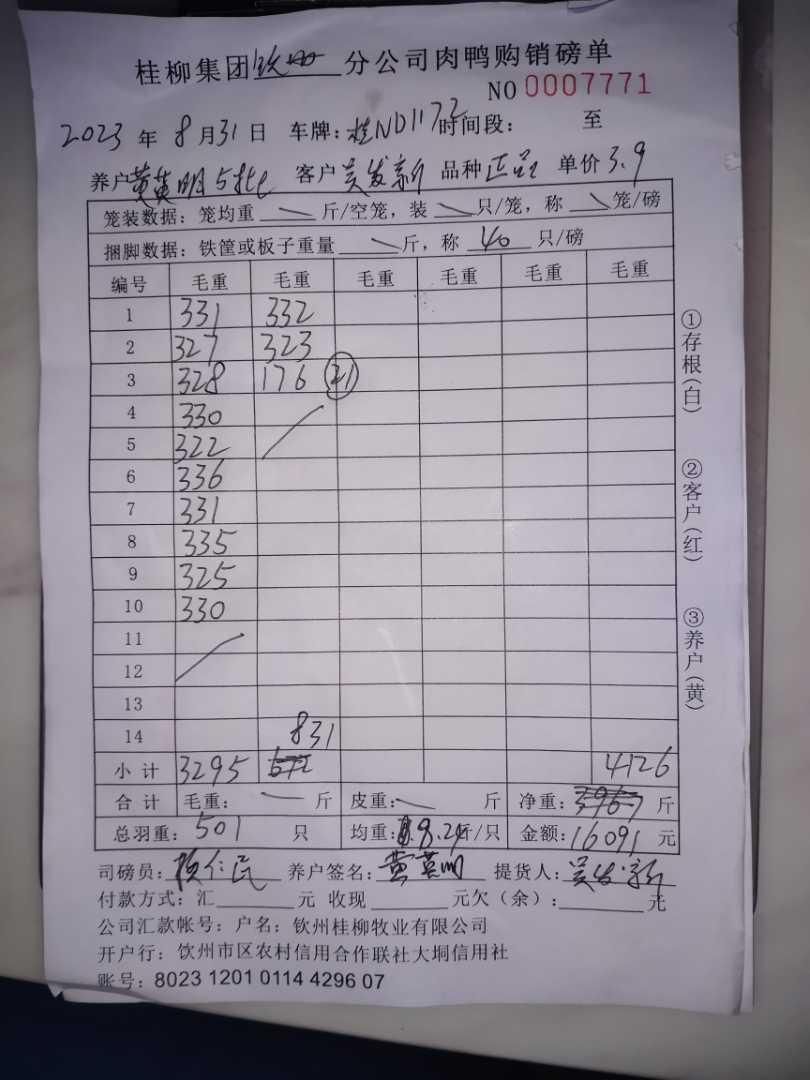 桂柳集团钦州分公司肉鸭购销磅单
NO 0007771
2023 年 8 月 31 日 车牌：桂ND1172 时间段： 至
养户 黄英明5批 客户 吴发新 品种 正品 单价 3.9
笼装数据：笼均重 斤/空笼，装 只/笼，称 笼/磅
捆脚数据：铁筐或板子重量 斤，称 40 只/磅
编号 毛重 毛重 毛重 毛重 毛重 毛重
1 331 332
2 327 323
3 328 176 21
4 330
5 322
6 336
7 331
8 335
9 325
10 330
11
12
13
14 831
小计 3295 4126
合计 毛重： 斤 皮重： 斤 净重： 斤
总羽重：501 只 均重：8.24斤/只 金额：16091 元
司磅员： 养户签名：黄英明 提货人：吴发新
付款方式：汇 元 收现 元欠（余）： 元
公司汇款帐号：户名：钦州桂柳牧业有限公司
开户行：钦州市区农村信用合作联社大垌信用社
账号：8023 1201 0114 4296 07
①存根（白）
②客户（红）
③养户（黄）